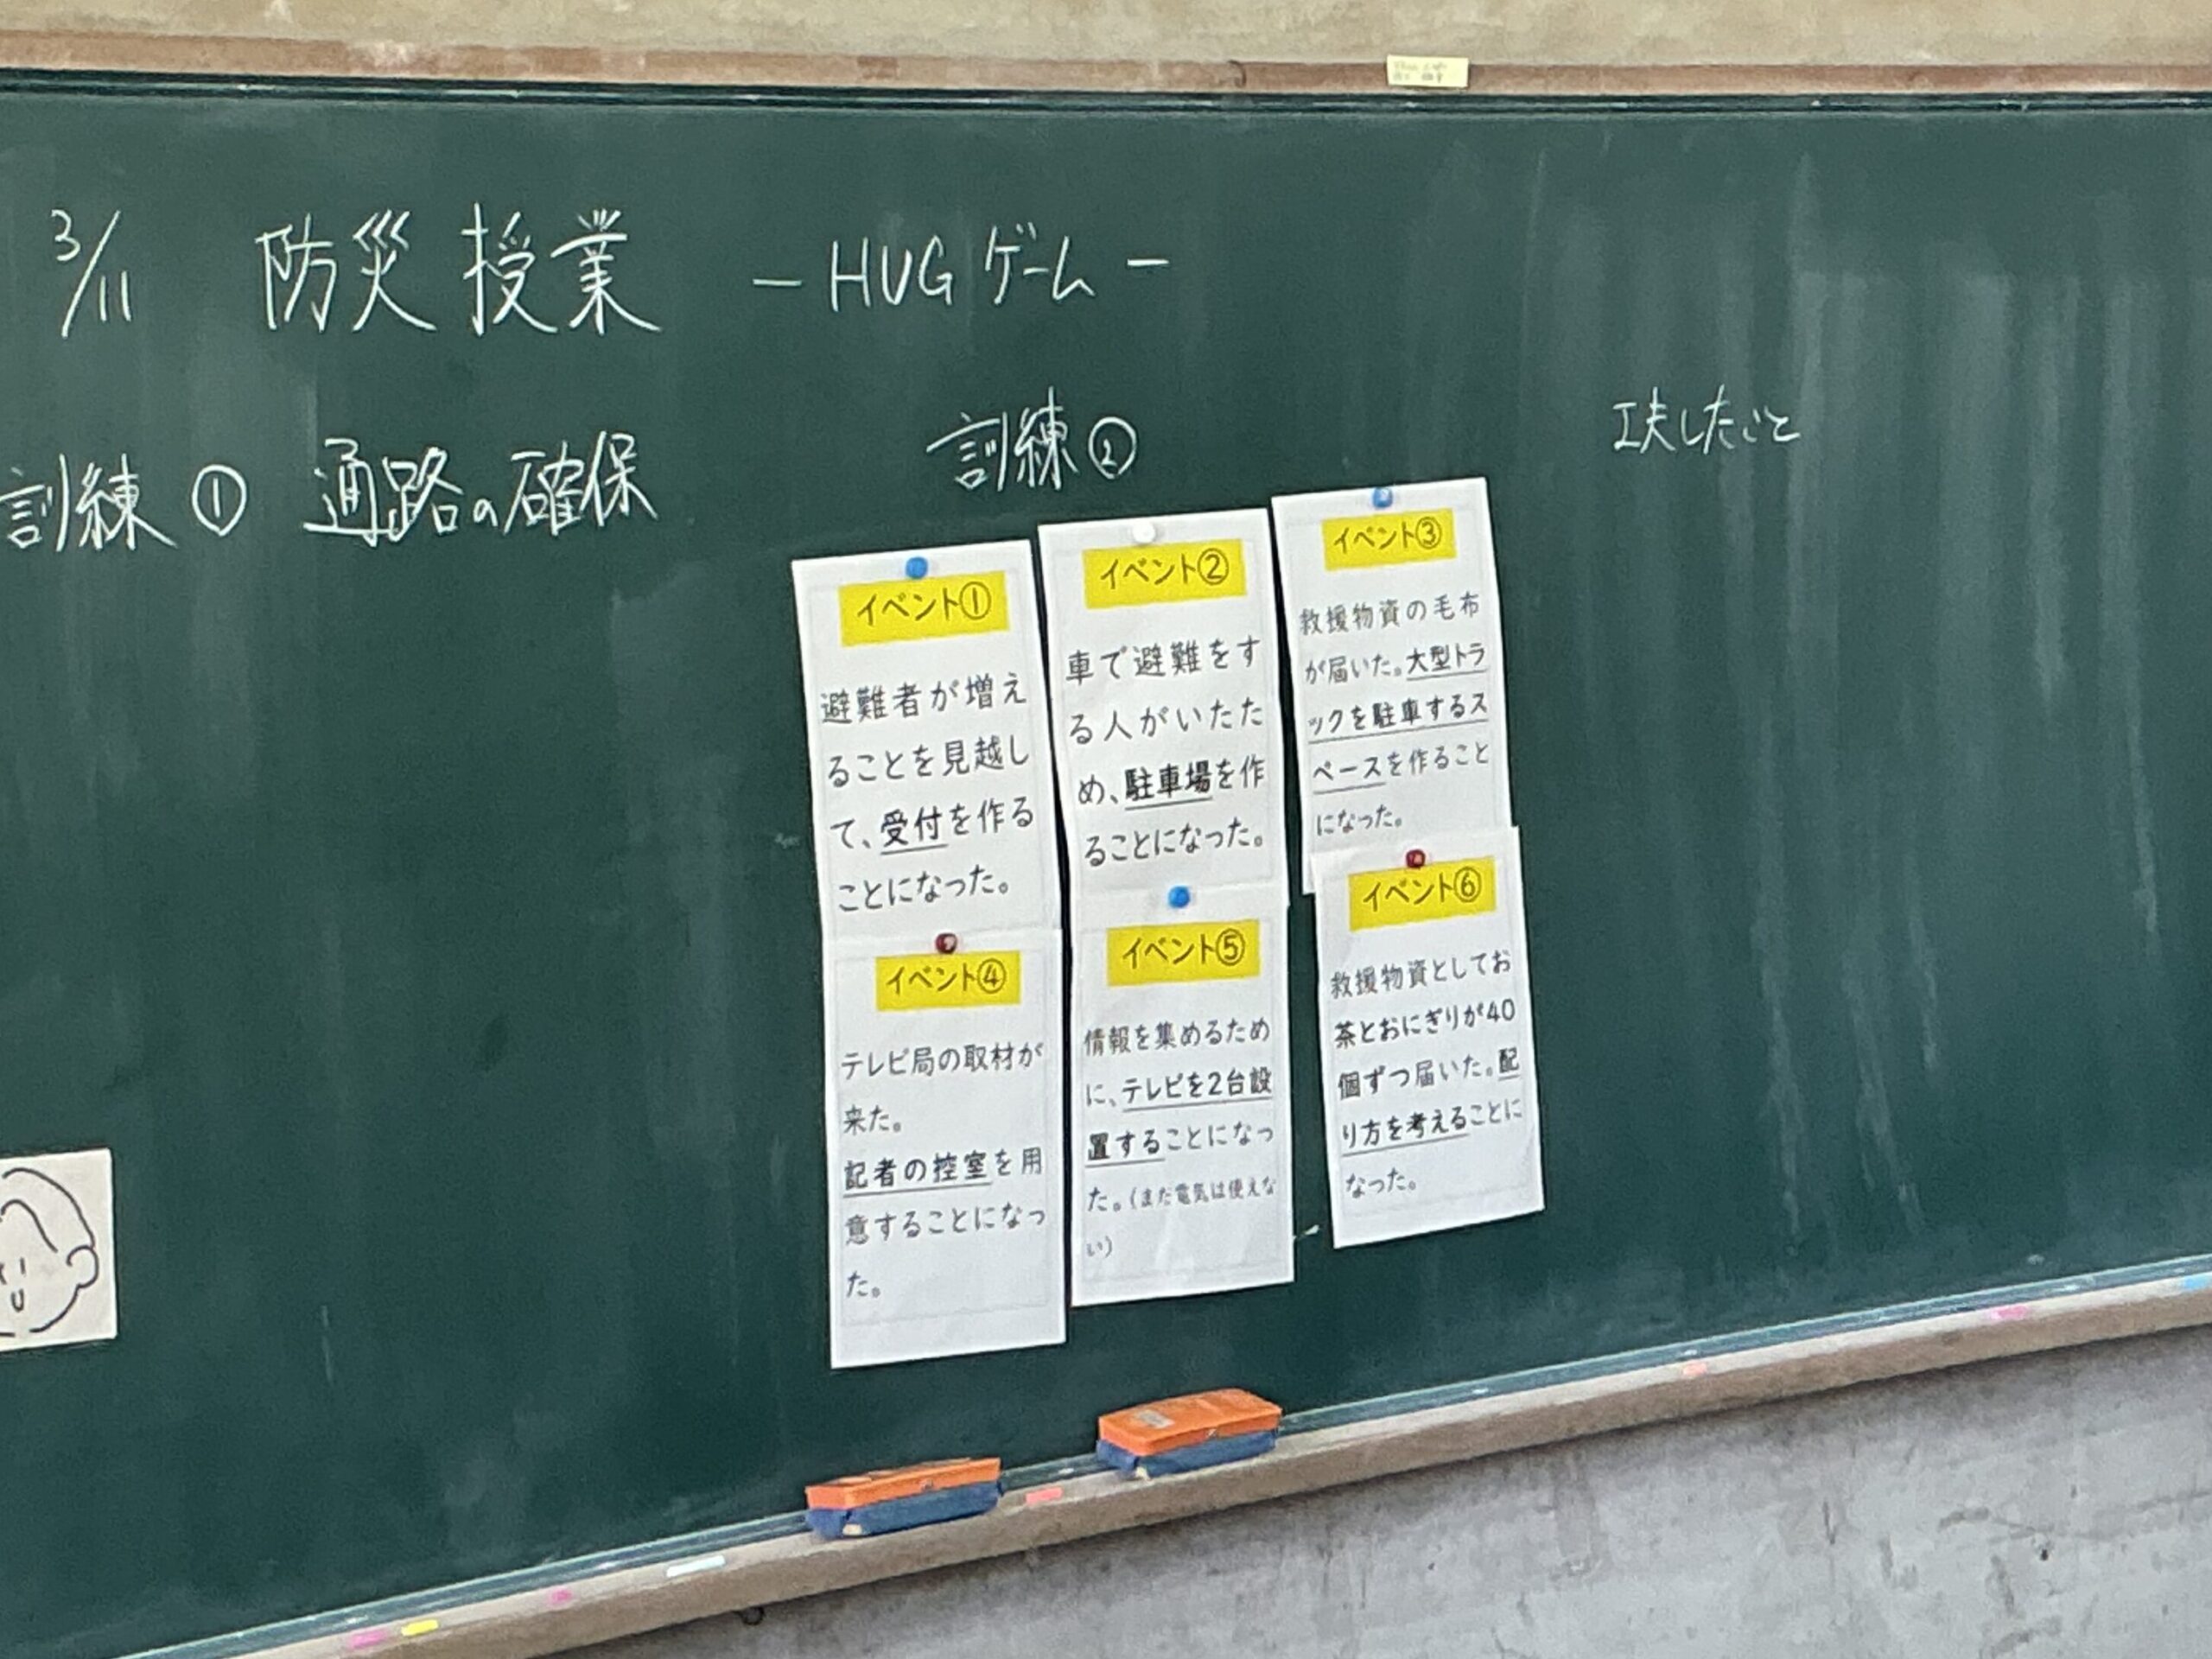 3/11 防災授業 -HUGゲーム-
訓練① 通路の確保
訓練②
イベント①
避難者が増え
ることを見越し
て、受付を作る
ことになった。
イベント②
車で避難をす
る人がいたた
め、駐車場を作
ることになった。
イベント③
救援物資の毛布
が届いた。大型トラ
ックを駐車するス
ペースを作ること
になった。
イベント④
テレビ局の取材が
来た。
記者の控室を用
意することになっ
た。
イベント⑤
情報を集めるため
に、テレビを2台設
置することになっ
た。(まだ電気は使えな
い)
イベント⑥
救援物資としてお
茶とおにぎりが40
個ずつ届いた。配
り方を考えることに
なった。
工夫したこと